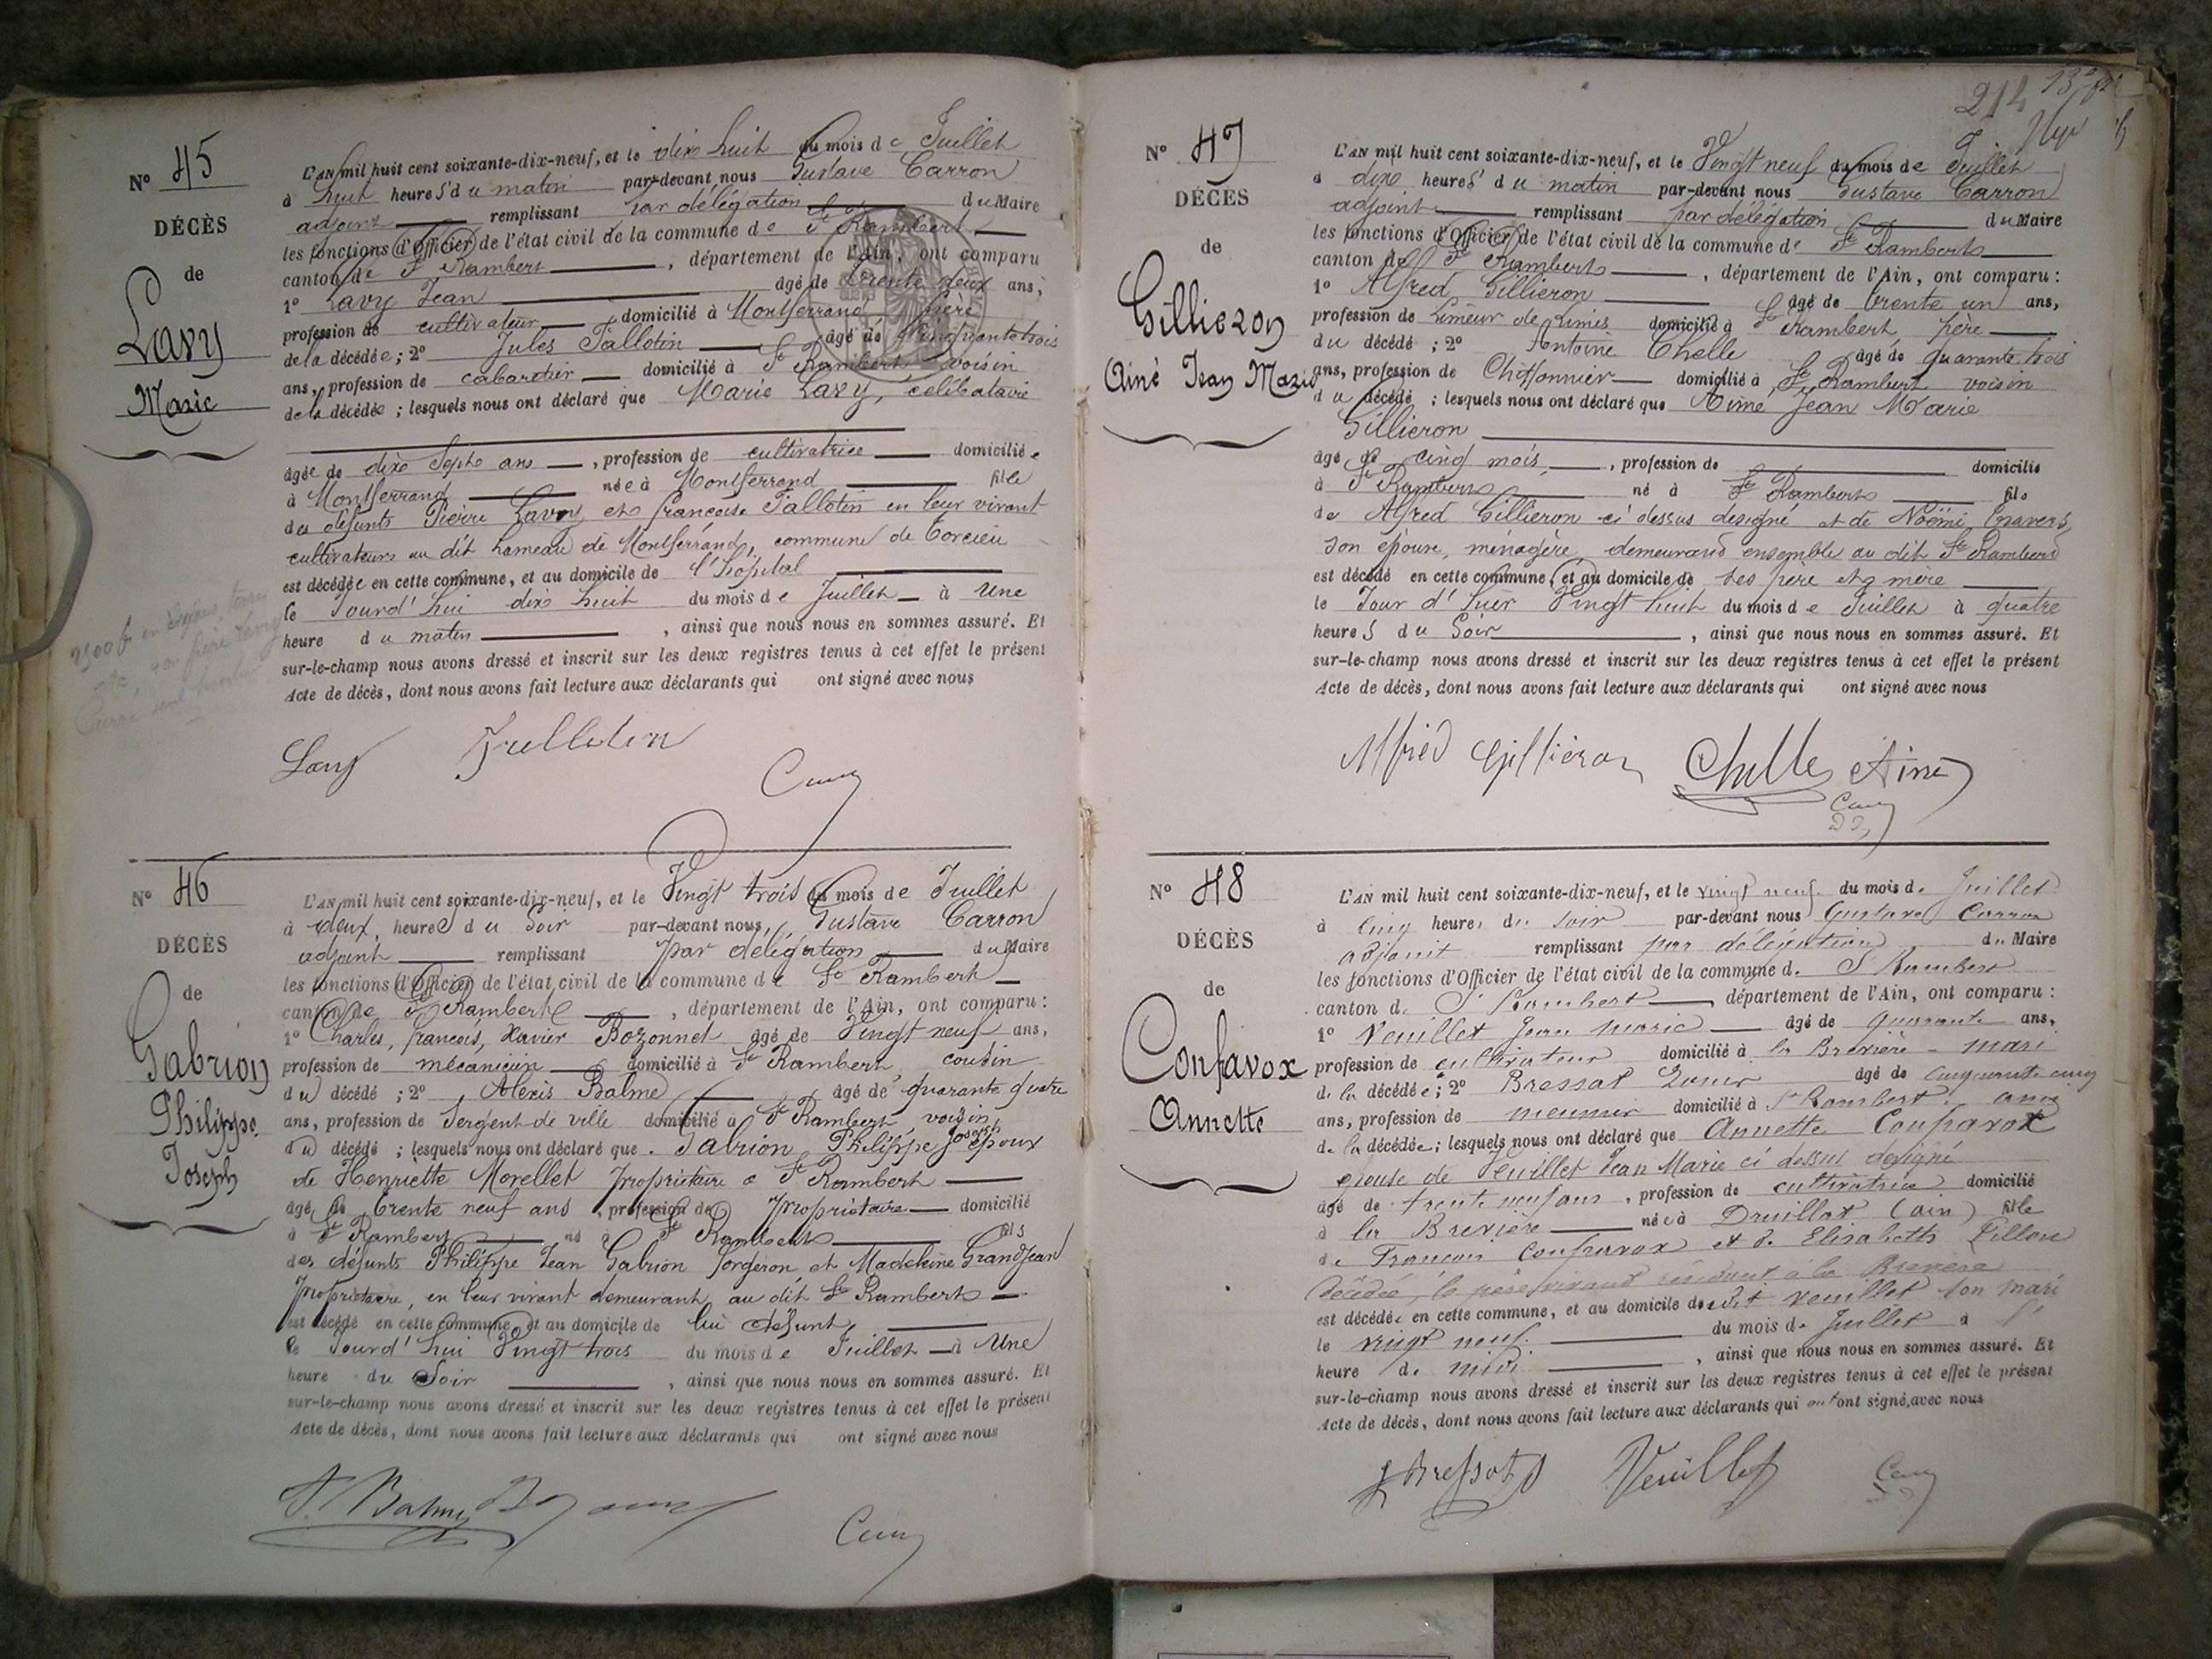 N° 45
DÉCÈS
de
Lavy
Marie
L'AN mil huit cent soixante-dix-neuf, et le dix huit du mois de Juillet
à huit heures du matin par-devant nous Gustave Carron
adjoint remplissant par délégation du Maire
les fonctions d'Officier de l'état civil de la commune de St Rambert
canton de St Rambert, département de l'Ain, ont comparu
1° Lavy Jean âgé de trente deux ans,
profession de cultivateur domicilié à Montferrand, frère
de la décédée; 2° Jules Tallotin âgé de cinquante trois
ans, profession de cabaretier domicilié à St Rambert voisin
de la décédée; lesquels nous ont déclaré que Marie Lavy, célibataire
âgée de dix Sept ans, profession de cultivatrice domiciliée
à Montferrand née à Montferrand fille
des défunts Pierre Lavy et françoise Tallotin en leur vivant
cultivateurs au dit hameau de Montferrand, commune de Torcieu
est décédée en cette commune, et au domicile de l'hopital
le Jourd'hui dix huit du mois de Juillet à Une
heure du matin, ainsi que nous nous en sommes assuré. Et
sur-le-champ nous avons dressé et inscrit sur les deux registres tenus à cet effet le présent
Acte de décès, dont nous avons fait lecture aux déclarants qui ont signé avec nous
Lavy
N° 46
DÉCÈS
de
Gabrion
Philippe
Joseph
L'AN mil huit cent soixante-dix-neuf, et le Vingt trois du mois de Juillet
à deux heures du Soir par-devant nous, Gustave Carron
adjoint remplissant par délégation du Maire
les fonctions d'Officier de l'état civil de la commune de St Rambert
canton de St Rambert, département de l'Ain, ont comparu:
1° Charles, françois, Xavier Bozonnet âgé de Vingt neuf ans,
profession de mécanicien domicilié à St Rambert cousin
du décédé; 2° Alexis Balme âgé de quarante quatre
ans, profession de Sergent de ville domicilié à St Rambert, voisin
du décédé; lesquels nous ont déclaré que Gabrion Philippe Joseph époux
de Henriette Morellet propriétaire à St Rambert
âgé de trente neuf ans, profession de propriétaire domicilié
à St Rambert né à St Rambert fils
des défunts Philippe Jean Gabrion forgeron et Madeleine Grandjean
propriétaire, en leur vivant demeurant au dit St Rambert
est décédé en cette commune et au domicile de lui défunt,
le Jourd'hui Vingt trois du mois de Juillet à Une
heure du Soir, ainsi que nous nous en sommes assuré. Et
sur-le-champ nous avons dressé et inscrit sur les deux registres tenus à cet effet le présent
Acte de décès, dont nous avons fait lecture aux déclarants qui ont signé avec nous
214
N° 47
DÉCÈS
de
Gillieron
Aimé Jean Marie
L'AN mil huit cent soixante-dix-neuf, et le Vingt neuf du mois de Juillet
à dix heures du matin par-devant nous Gustave Carron
adjoint remplissant par délégation du Maire
les fonctions d'Officier de l'état civil de la commune de St Rambert
canton de St Rambert, département de l'Ain, ont comparu:
1° Alfred Gillieron âgé de trente un ans,
profession de Limeur de Limes domicilié à St Rambert, père
du décédé; 2° Antoine Chelle âgé de quarante trois
ans, profession de Chiffonnier domicilié à St Rambert voisin
du décédé; lesquels nous ont déclaré que Aimé Jean Marie
Gillieron
âgé de cinq mois, profession de domicilié
à St Rambert né à St Rambert fils
de Alfred Gillieron ci dessus designé et de Noëmi Travers,
son épouse, ménagère, demeurand ensemble au dit St Rambert
est décédé en cette commune, et au domicile de ses père et mère
le Jour d'hier Vingt huit du mois de Juillet à quatre
heures du Soir, ainsi que nous nous en sommes assuré. Et
sur-le-champ nous avons dressé et inscrit sur les deux registres tenus à cet effet le présent
Acte de décès, dont nous avons fait lecture aux déclarants qui ont signé avec nous
Alfred Gilliéron Chelle Ainé
N° 48
DÉCÈS
de
Confavox
Annette
L'AN mil huit cent soixante-dix-neuf, et le vingt neuf du mois de Juillet
à cinq heures du soir par-devant nous Gustave Carron
adjoint remplissant par délégation du Maire
les fonctions d'Officier de l'état civil de la commune de St Rambert
canton de St Rambert, département de l'Ain, ont comparu:
1° Veuillet Jean Marie âgé de quarante ans,
profession de cultivateur domicilié à la Brevière - mari
de la décédée; 2° Bressat âgé de cinquante cinq
ans, profession de meunier domicilié à St Rambert, ami
de la décédée; lesquels nous ont déclaré que Annette Confavox
épouse de Veuillet Jean Marie ci dessus designé
âgé de trente neuf ans, profession de cultivatrice domicilié
à la Brevière née à Druillat (ain) fille
de François Confavox et d'Elisabeth Pillon
décédée, le père vivant résidant à la Brevière
est décédée en cette commune, et au domicile du dit Veuillet son mari
le vingt neuf du mois de Juillet à l'
heure de midi, ainsi que nous nous en sommes assuré. Et
sur-le-champ nous avons dressé et inscrit sur les deux registres tenus à cet effet le présent
Acte de décès, dont nous avons fait lecture aux déclarants qui ont signé avec nous
Bressat Veuillet